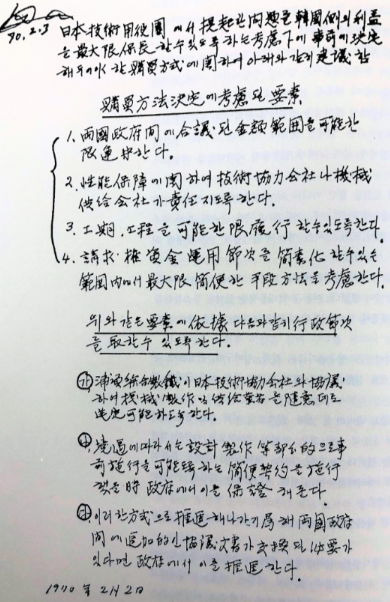 70. 2. 3
日本技術用役團에서 提起한 問題를 韓國側의 利益
을 最大限保長 할수있도록하는 考慮下에 事前에 決定
해두어야 할 購買方式에 関하여 아래와 같이 建議함
購買方法決定에 考慮될 要素
1. 両國政府間에 合議된 金額範囲를 可能한
限 遵守한다.
2. 性能保障에 関하여 技術協力会社나 機械
供給会社가 責任지도록 한다.
3. 工期, 工程을 可能한限 履行 할수있도록한다.
4. 請求権資金 運用 節次를 簡素化 할수있는
範囲内에서 最大限 簡便한 手段方法을 考慮한다.
위와같은 要素에 依據 다음과같이 行政節次
를 取할수 있도록 한다.
㉮ 浦項綜合製鐵이 日本技術協力会社와 協議
하여 機械製作 및 供給業者를 随意로
選定 可能하도록 한다.
㉯ 境遇에따라서는 設計 製作 等 部分的으로 事
前施行을 可能토록 하는 簡便契約을 施行
했을時 政府에서 이를 保證 해준다.
㉰ 이러한 方式으로 推進해나가기 爲해 両國政府
間에 追加的인 協議文書가 交換될 必要가
있다면 政府에서 이를 推進한다.
1970年 2月 2日